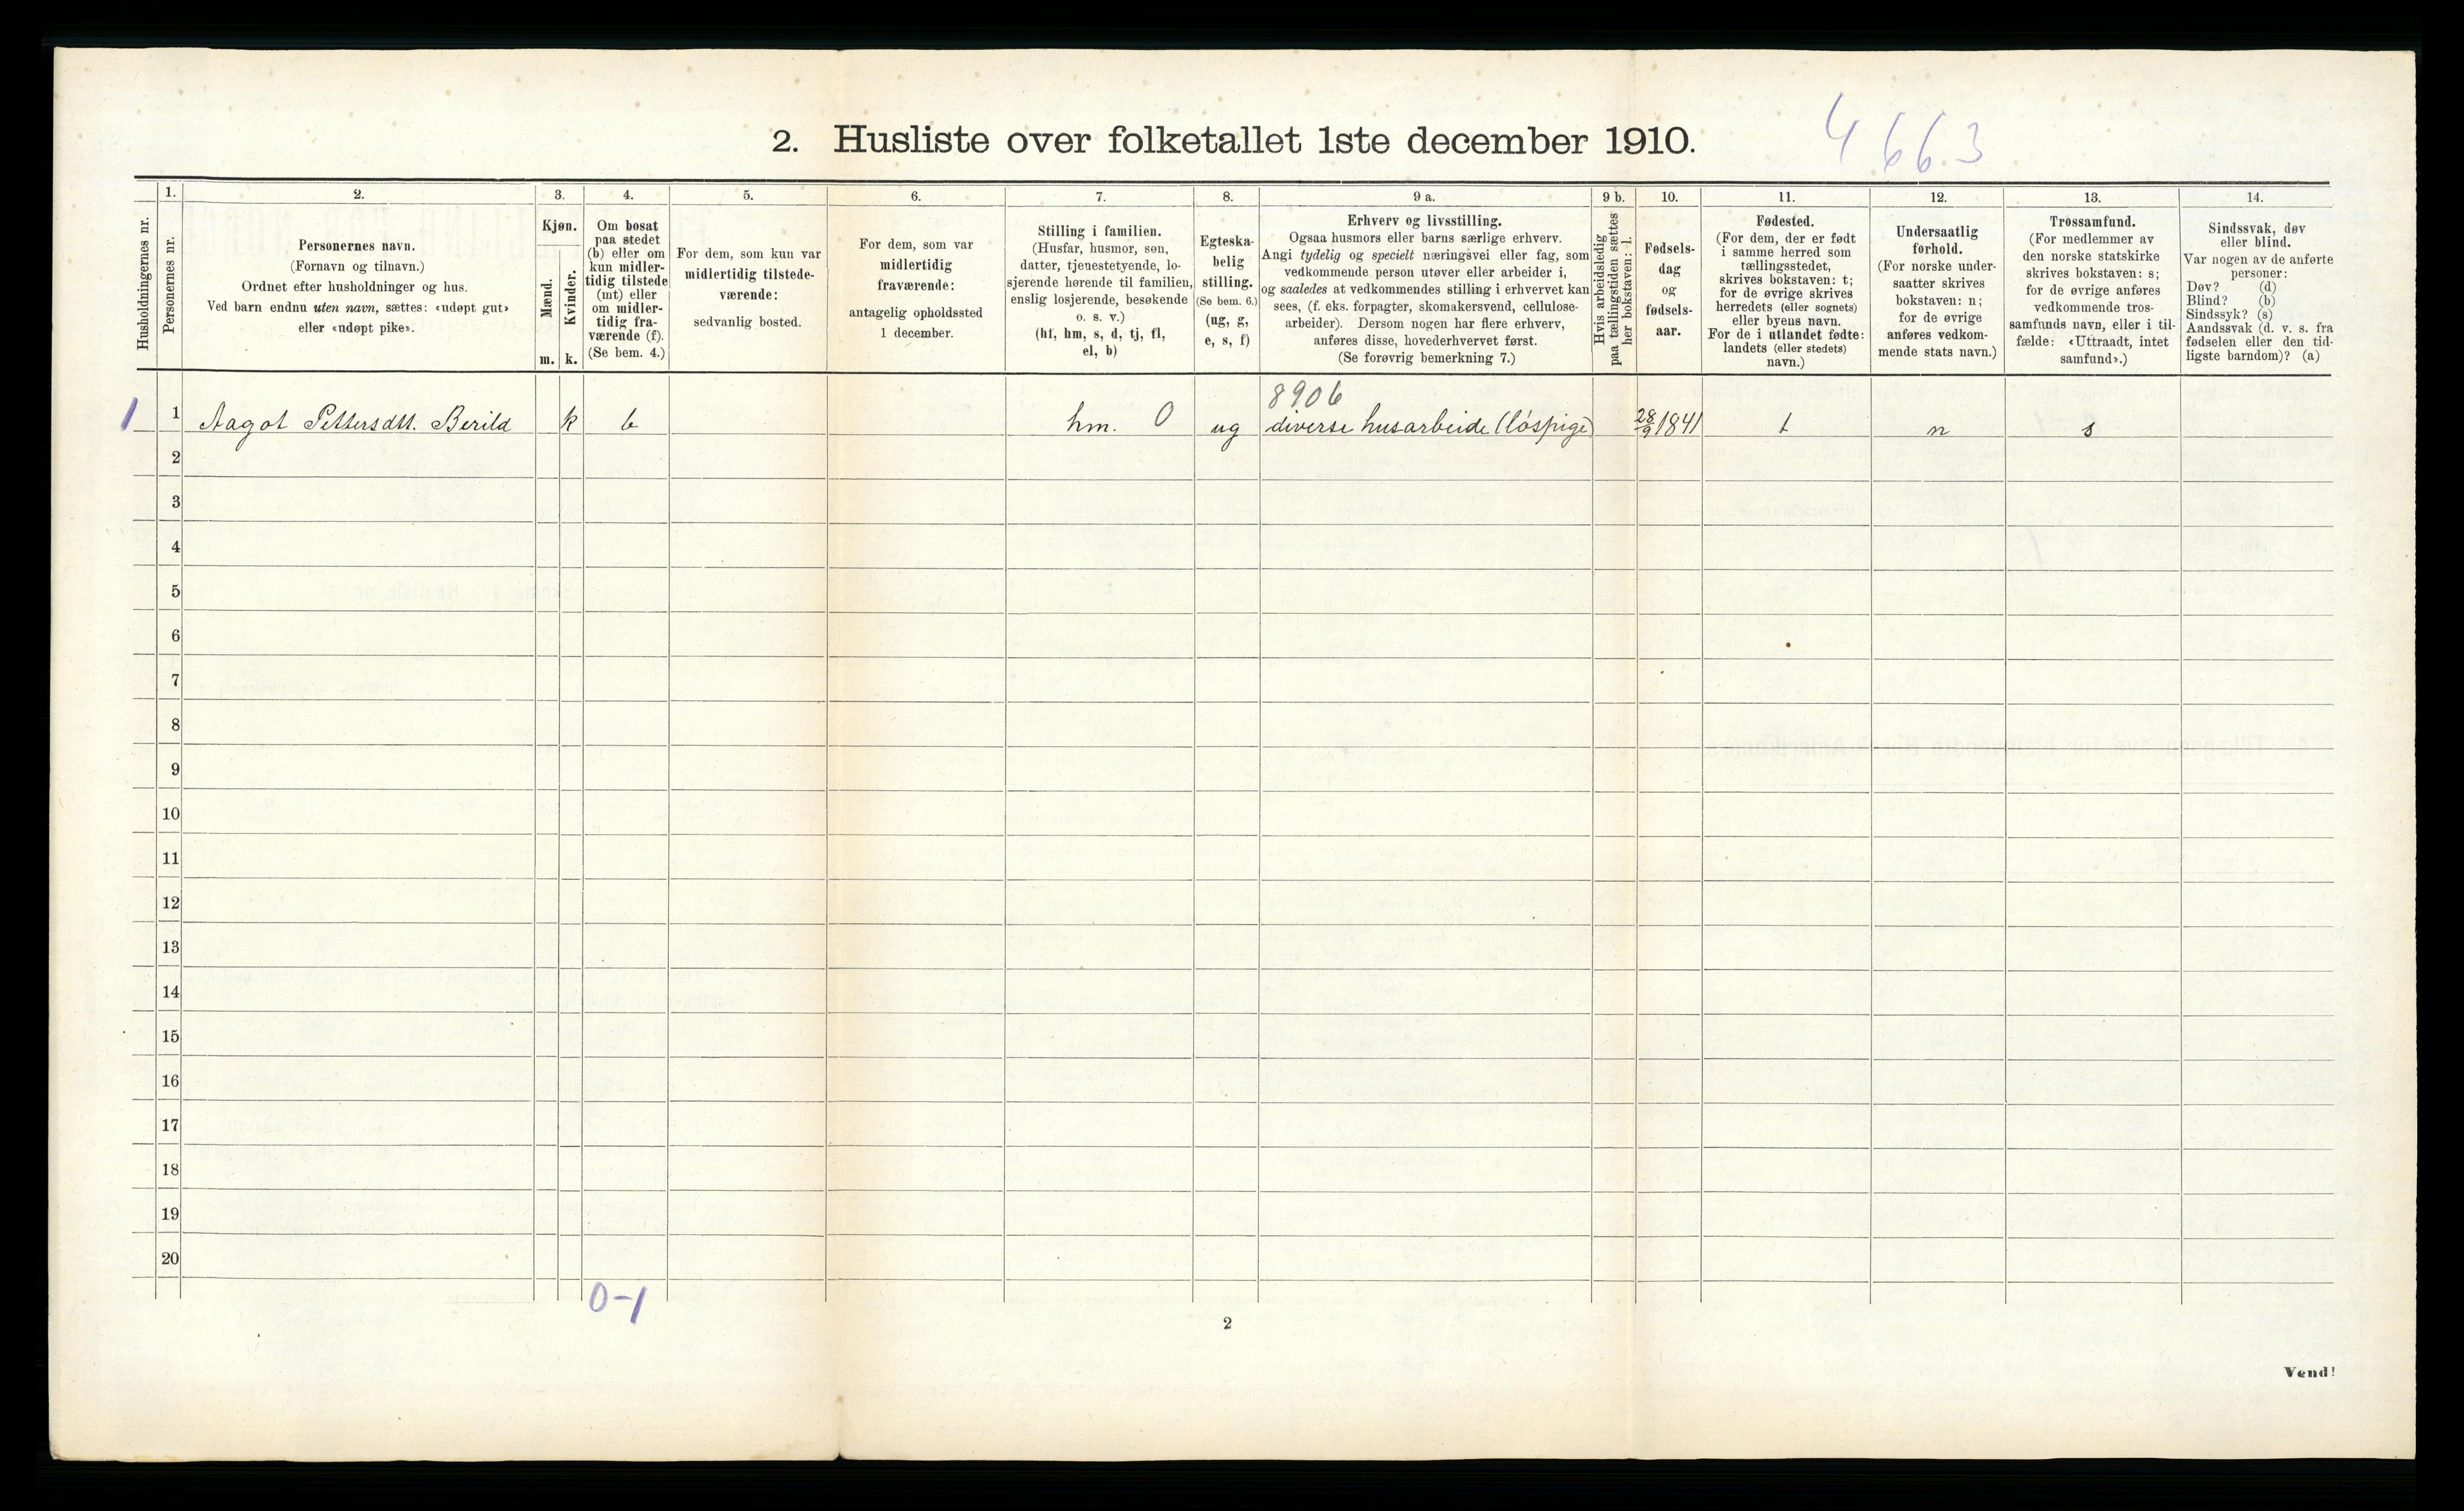 2. Husliste over folketallet 1ste december 1910.
4663
Husholdningernes nr.
1.
Personernes nr.
2.
Personernes navn.
(Fornavn og tilnavn.)
Ordnet efter husholdninger og hus.
Ved barn endnu uten navn, sættes: «udøpt gut»
eller «udøpt pike».
3.
Kjøn.
Mænd.
Kvinder.
m. k.
4.
Om bosat
paa stedet
(b) eller om
kun midler-
tidig tilstede
(mt) eller
om midler-
tidig fra-
værende (f).
(Se bem. 4.)
5.
For dem, som kun var
midlertidig tilstede-
værende:
sedvanlig bosted.
6.
For dem, som var
midlertidig
fraværende:
antagelig opholdssted
1 december.
7.
Stilling i familien.
(Husfar, husmor, søn,
datter, tjenestetyende, lo-
sjerende hørende til familien,
enslig losjerende, besøkende
o. s. v.)
(hf, hm, s, d, tj, fl,
el, b)
8.
Egteska-
belig
stilling.
(Se bem. 6.)
(ug, g,
e, s, f)
9 a.
Erhverv og livsstilling.
Ogsaa husmors eller barns særlige erhverv.
Angi tydelig og specielt næringsvei eller fag, som
vedkommende person utøver eller arbeider i,
og saaledes at vedkommendes stilling i erhvervet kan
sees, (f. eks. forpagter, skomakersvend, cellulose-
arbeider). Dersom nogen har flere erhverv,
anføres disse, hovederhvervet først.
(Se forøvrig bemerkning 7.)
9 b.
Hvis arbeidsledig
paa tællingstiden sættes
her bokstaven: l.
10.
Fødsels-
dag
og
fødsels-
aar.
11.
Fødested.
(For dem, der er født
i samme herred som
tællingsstedet,
skrives bokstaven: t;
for de øvrige skrives
herredets (eller sognets)
eller byens navn.
For de i utlandet fødte:
landets (eller stedets)
navn.)
12.
Undersaatlig
forhold.
(For norske under-
saatter skrives
bokstaven: n;
for de øvrige
anføres vedkom-
mende stats navn.)
13.
Trossamfund.
(For medlemmer av
den norske statskirke
skrives bokstaven: s;
for de øvrige anføres
vedkommende tros-
samfunds navn, eller i til-
fælde: «Uttraadt, intet
samfund».)
14.
Sindssvak, døv
eller blind.
Var nogen av de anførte
personer:
Døv? (d)
Blind? (b)
Sindssyk? (s)
Aandssvak (d. v. s. fra
fødselen eller den tid-
ligste barndom)? (a)
8906
1 1 Aagot Pettersdtt. Berild k b hm. 0 ug diverse husarbeide (løspige) 28/9 1841 t n s
2
3
4
5
6
7
8
9
10
11
12
13
14
15
16
17
18
19
20
0-1
2
Vend!